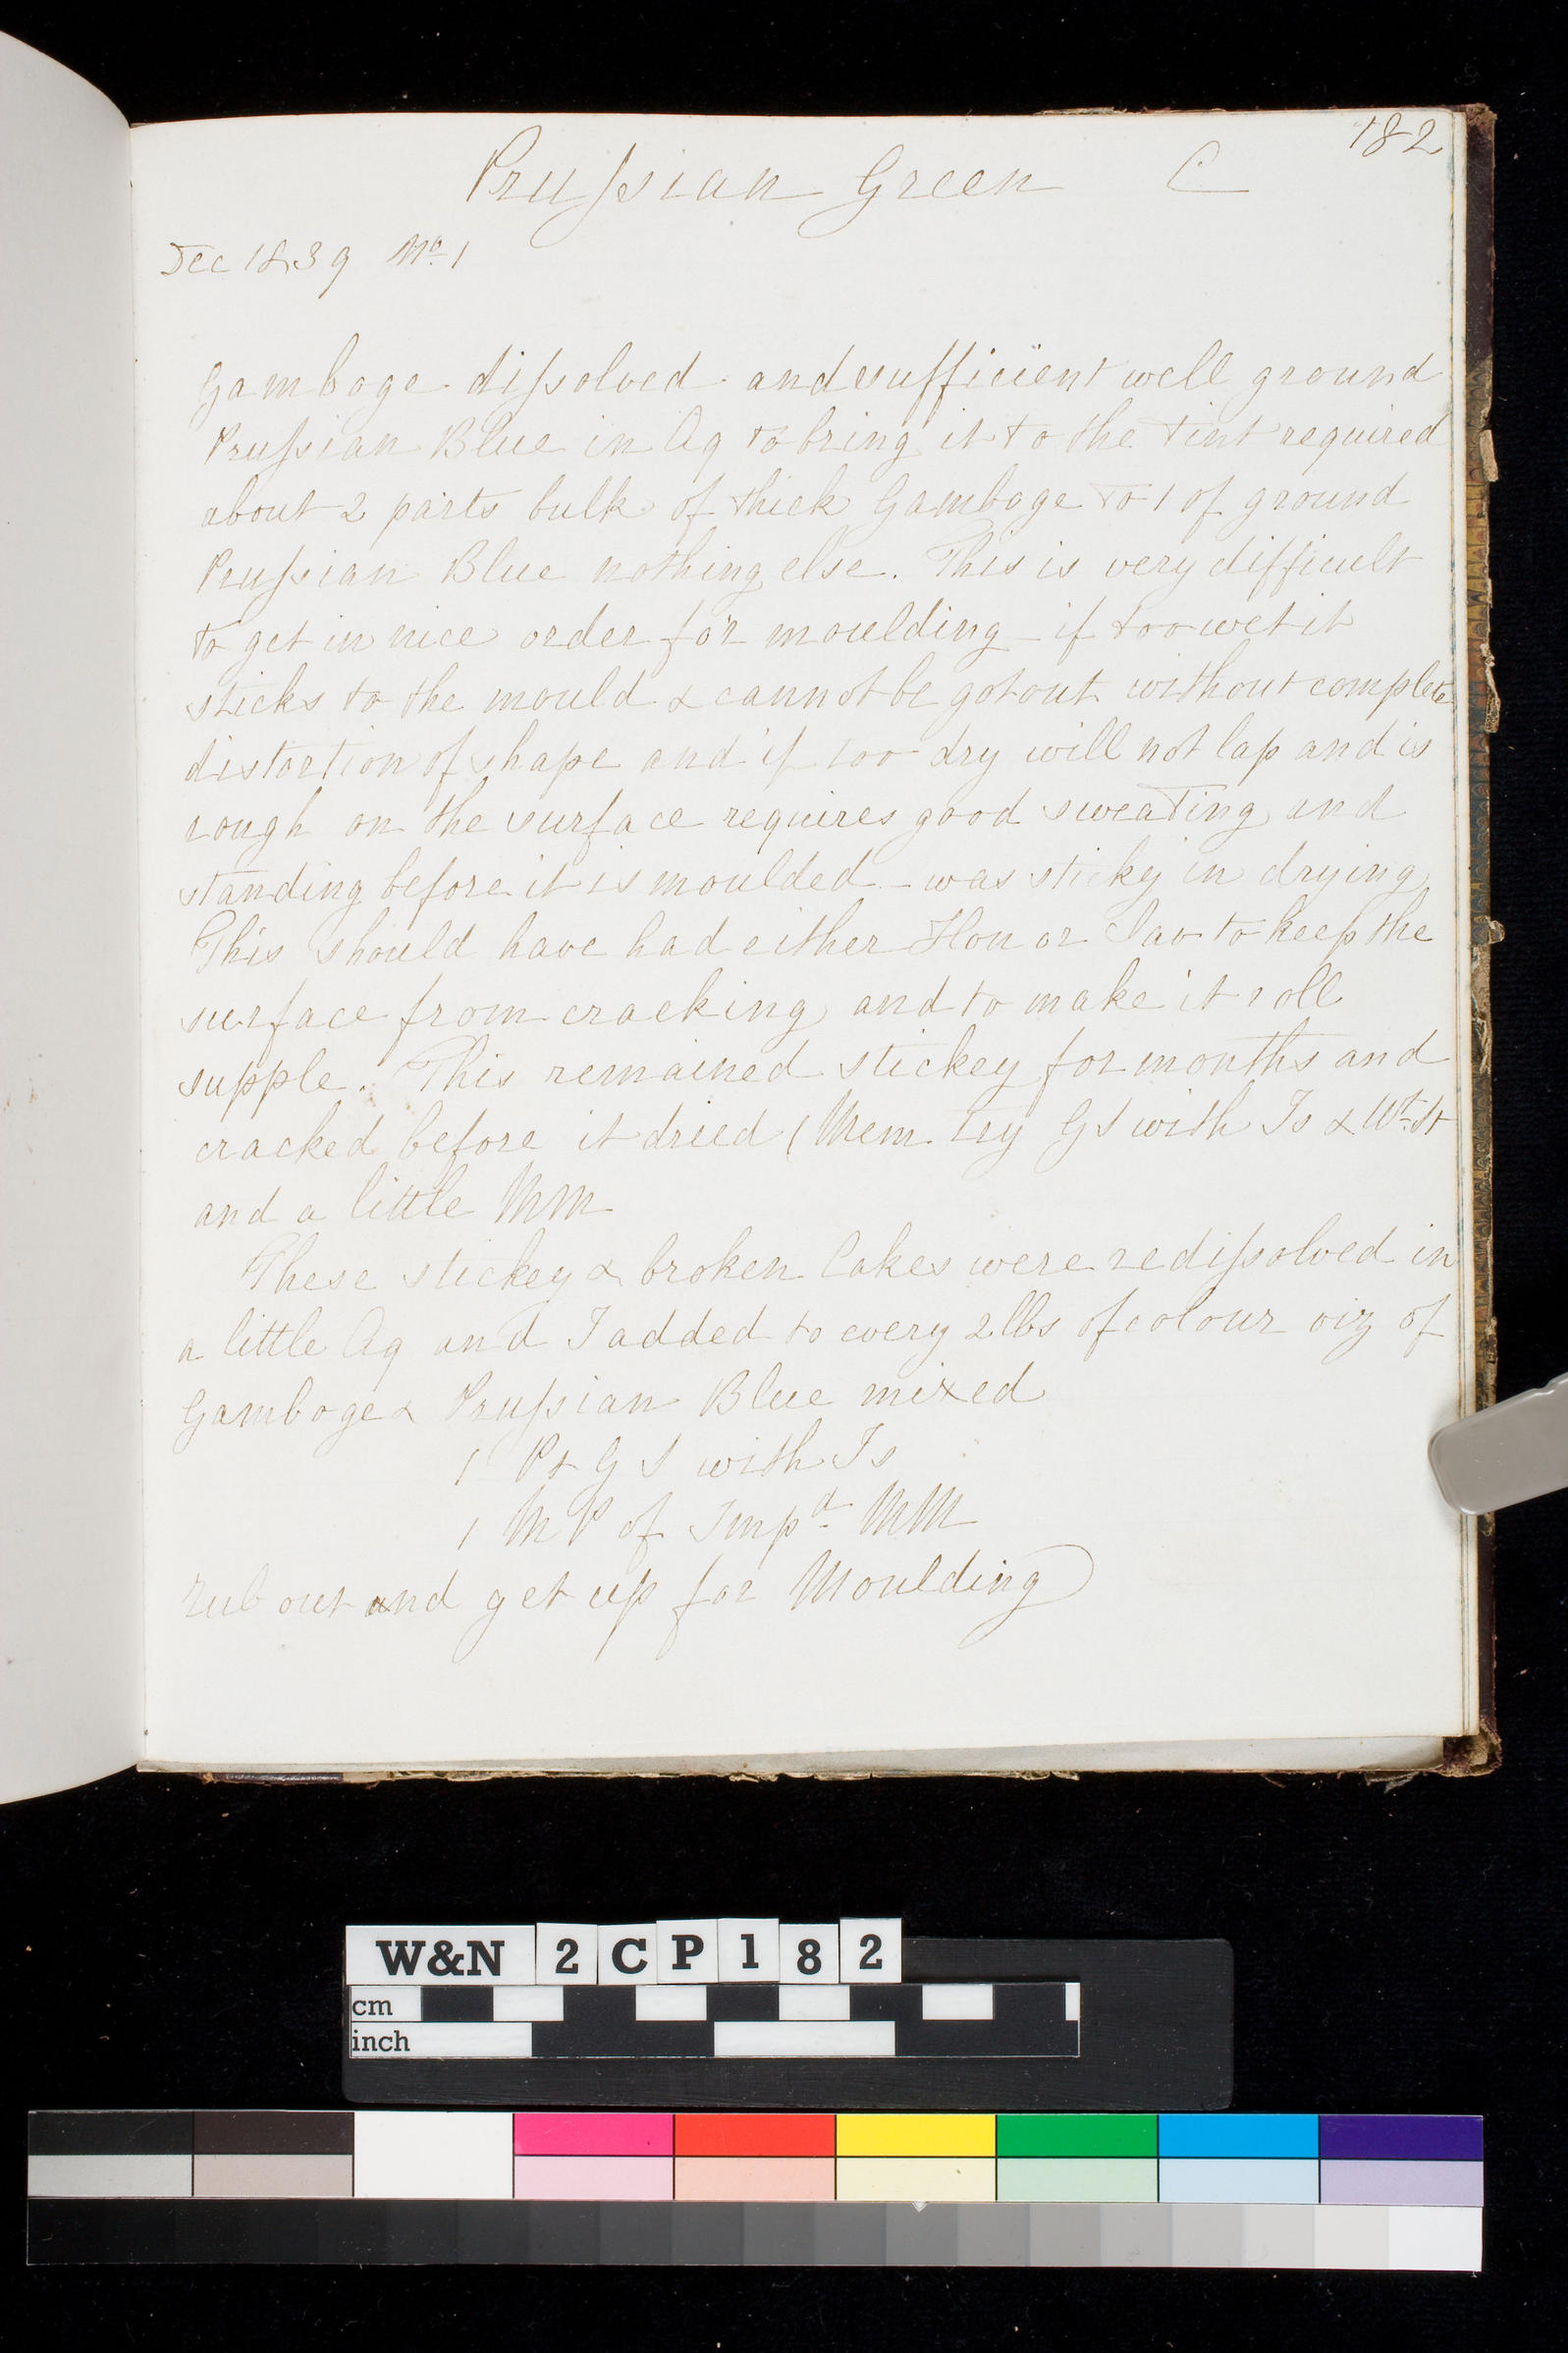 182
Prussian Green C
Dec 1839 No. 1
Gamboge dissolved and sufficient well ground
Prussian Blue in Aq to bring it to the tint required
about 2 parts bulk of thick Gamboge to 1 of ground
Prussian Blue nothing else. This is very difficult
to get in nice order for moulding – if too wet it
sticks to the mould & cannot be got out without complete
distortion of shape and if too dry will not lap and is
rough on the surface requires good sweating and
standing before it is moulded – was sticky in drying
This should have had either Hon or Sav to keep the
surface from cracking and to make it roll
supple. This remained stickey for months and
cracked before it dried (Mem. try GS with Is & Wt. St
and a little MM
These stickey & broken Cakes were redissolved in
a little Aq and I added to every 2 lbs of colour viz of
Gamboge & Prussian Blue mixed
1 Pt G S with Is
1 MP of Impd. MM
rub out and get up for Moulding)
W&N 2CP182
cm
inch